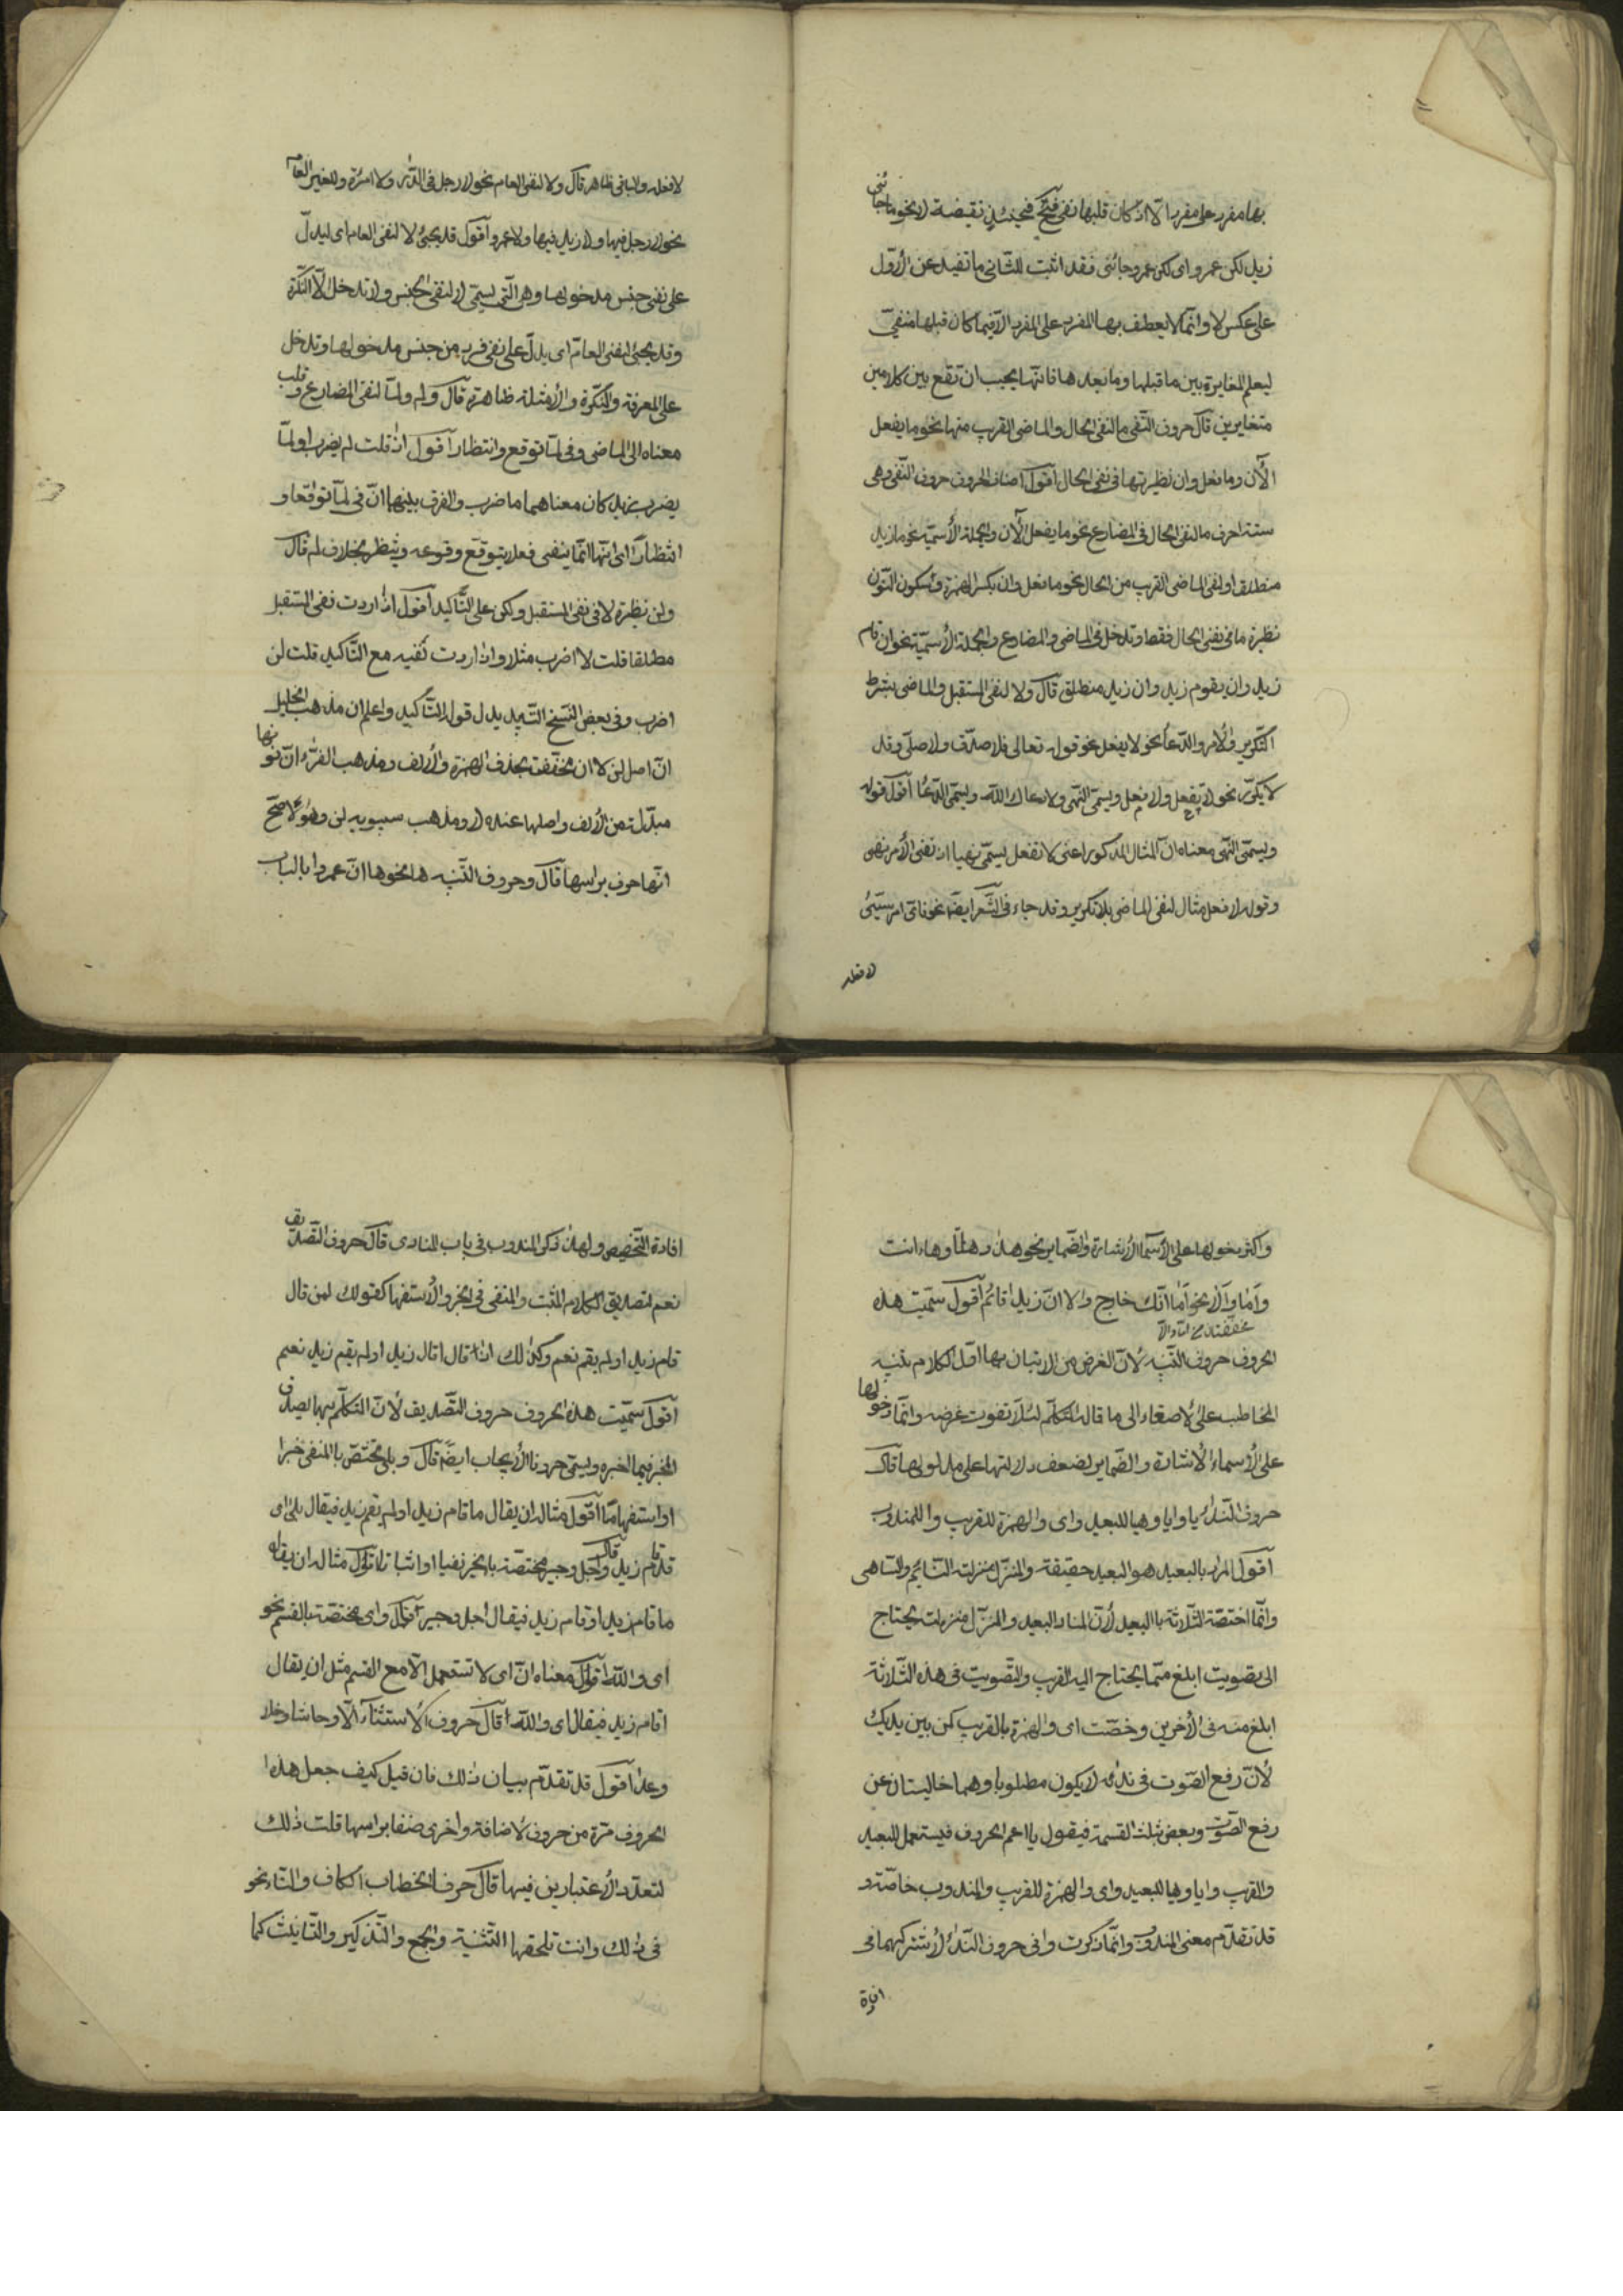 بها مفرد على مفرد الا اذ كان قلبها نفى فيحئذ نقيضة لا نحو ما جائنى
زيد لكن عمرو اى لكن عمرو جائنى فقد اثبت للثانى ما تفيد عن الاول
على عكس لا وانما لا يعطف بها المفرد على المفرد الا فيما كان قبلها منفى
ليعلم المغايرة بين ما قبلها وما بعدها فانها يجب ان تقع بين كلامين
متغايرين قال حروف النفى ما لنفى الحال والماضى القريب منها نحو ما يفعل
الآن وما فعل وان نظيرتها فى نفى الحال اقول اصناف الحروف حروف النفى وهى
ستة احرف ما لنفى الحال فى المضارع نحو ما يفعل الآن والجملة الاسمية نحو ما زيد
منطلق او لنفى الماضى القريب من الحال نحو ما فعل وان بكسر الهمزة وسكون النون
نظيرة ما فى نفى الحال فقط وتدخل فى الماضى والمضارع والجملة الاسمية نحو ان قام
زيد وان يقوم زيد وان زيد منطلق قال ولا لنفى المستقبل والماضى بشرط
التكرير والامر والدعأ نحو لا يفعل نحو قوله تعالى فلا صدق ولا صلى وقد
لا يكرر نحو لا يفعل ولا فعل ويسمى النهى ولا رعاك الله ويسمى الدعأ اقول قوله
ويسمى النهى معناه ان المثال المذكور اعنى لا تفعل يسمى نهيا اذ نفى الأمر نهى
وقوله لا فعل مثال لنفى الماضى بلا تكرير وقد جاء فى الشعر ايضا نحو فاى امر سيئ
لا فعله
لا فعله والباقى ظاهر قال ولا لنفى العام نحو لا رجل فى الدار ولا امرئة ولغير العام
نحو لا رجل فيها ولا زيد فيها ولا عمرو اقول قد يجئ لا لنفى العام اى ليدل
على نفى جنس مدخولها وهى التى تسمى لا لنفى الجنس ولا تدخل الا النكرة
وقد يجئ لنفى العام اى يدل على نفى فرد من جنس مدخولها وتدخل
على المعرفة والنكرة والأمثلة ظاهرة قال ولم ولما لنفى المضارع وقلب
معناه الى الماضى وفى لما توقع وانتظار اقول اذ قلت لم يضرب او لما
يضرب زيد كان معناهما ما ضرب والفرق بينهما ان فى لما توقعا و
انتظارا اى انها انما ينفى فعلا يتوقع وقوعه وينتظر بخلاف لم قال
ولن نظيرة لا فى نفى المستقبل ولكن على التأكيد اقول اذ اردت نفى المستقبل
مطلقا قلت لا اضرب مثلا واذا اردت نفيه مع التاكيد قلت لن
اضرب وفى بعض النسخ التابيد بدل قوله التاكيد واعلم ان مذهب الخليل
ان اصل لن لا ان فخففت بحذف الهمزة والألف ومذهب الفراء ان نونها
مبدلة من الألف واصلها عنده لا ومذهب سيبويه لن وهو الاصح
انها حرف برأسها قال وحروف التنبيه ها نحو ها ان عمروا بالباب
واكثر دخولها على الأسماء الأشارة والضماير نحو هذا وهاتا وها انت
وأما وألا نحو أما انك خارج والا ان زيدا قائم اقول سميت هذه
مخففتان من اما والا
الحروف حروف التنبيه لأن الغرض من الاتيان بها اول الكلام تنبيه
المخاطب على الاصغاء الى ما قال المتكلم لئلا تفوت غرضه وانما دخولها
على الاسماء الاشارة والضماير لضعف دلالتها على مدلولها قال
حروف النداء يا وايا وهيا للبعيد واى والهمزة للقريب وا للمندوب
اقول المراد بالبعيد هو البعيد حقيقة والمنزل منزلته النائم والساهى
وانما اختصة الثلاثة باالبعيد لأن المناد البعيد والمنزل منزلته يحتاج
الى تصويت ابلغ مما يحتاج اليه القريب والتصويت فى هذه الثلاثة
ابلغ منه فى الأخرين وخصت اى والهمزة بالقريب كمن بين يديك
لأن رفع الصوت فى ندائه لا يكون مطلوبا وهما خاليتان عن
رفع الصوت وبعض ثلث القسمة فيقول يا اعم الحروف فيستعمل للبعيد
والقريب وايا وهيا للبعيد واى والهمزة للقريب والمندوب خاصة و
قد تقدم معنى المندوب وانما ذكرت وا فى حروف النداء لأشتراكهما فى
افادة
افادة التخصيص ولهذا ذكر المندوب فى باب المنادى قال حروف التصديق
نعم لتصديق الكلام المثبت والمنفى فى الخبر والأستفهام كقولك لمن قال
قام زيد او لم يقم نعم وكذلك اذا قال اقام زيد او لم يقم زيد نعم
اقول سميت هذه الحروف حروف التصديق لأن المتكلم بها يصدق
المخبر فيما اخبره ويسمى حروف الأيجاب ايضا قال وبلى تختص باالمنفى خبرا
او استفهاما اقول مثاله ان يقال ما قام زيد او لم يقم زيد فيقال بلى اى
قد قام زيد قال واجل وجير مختصة بالخبر نفيا او اثباتا اقول مثاله ان يقال
ما قام زيد او قام زيد فيقال اجل وجير قال واى مختصة بالقسم نحو
اى والله اقول معناه ان اى لا تستعمل الا مع القسم مثل ان يقال
اقام زيد فيقال اى والله قال حروف الأستثناء الا وحاشا وخلا
وعدا اقول قد تقدم بيان ذلك فان قيل كيف جعل هذه
الحروف مرة من حروف الاضافة واخرى صنفا برأسها قلت ذلك
لتعدد الأعتبارين فيها قال حرفا الخطاب الكاف والتاء نحو
فى ذلك وانت تلحقها التثنية والجمع والتذكير والتانيث كما